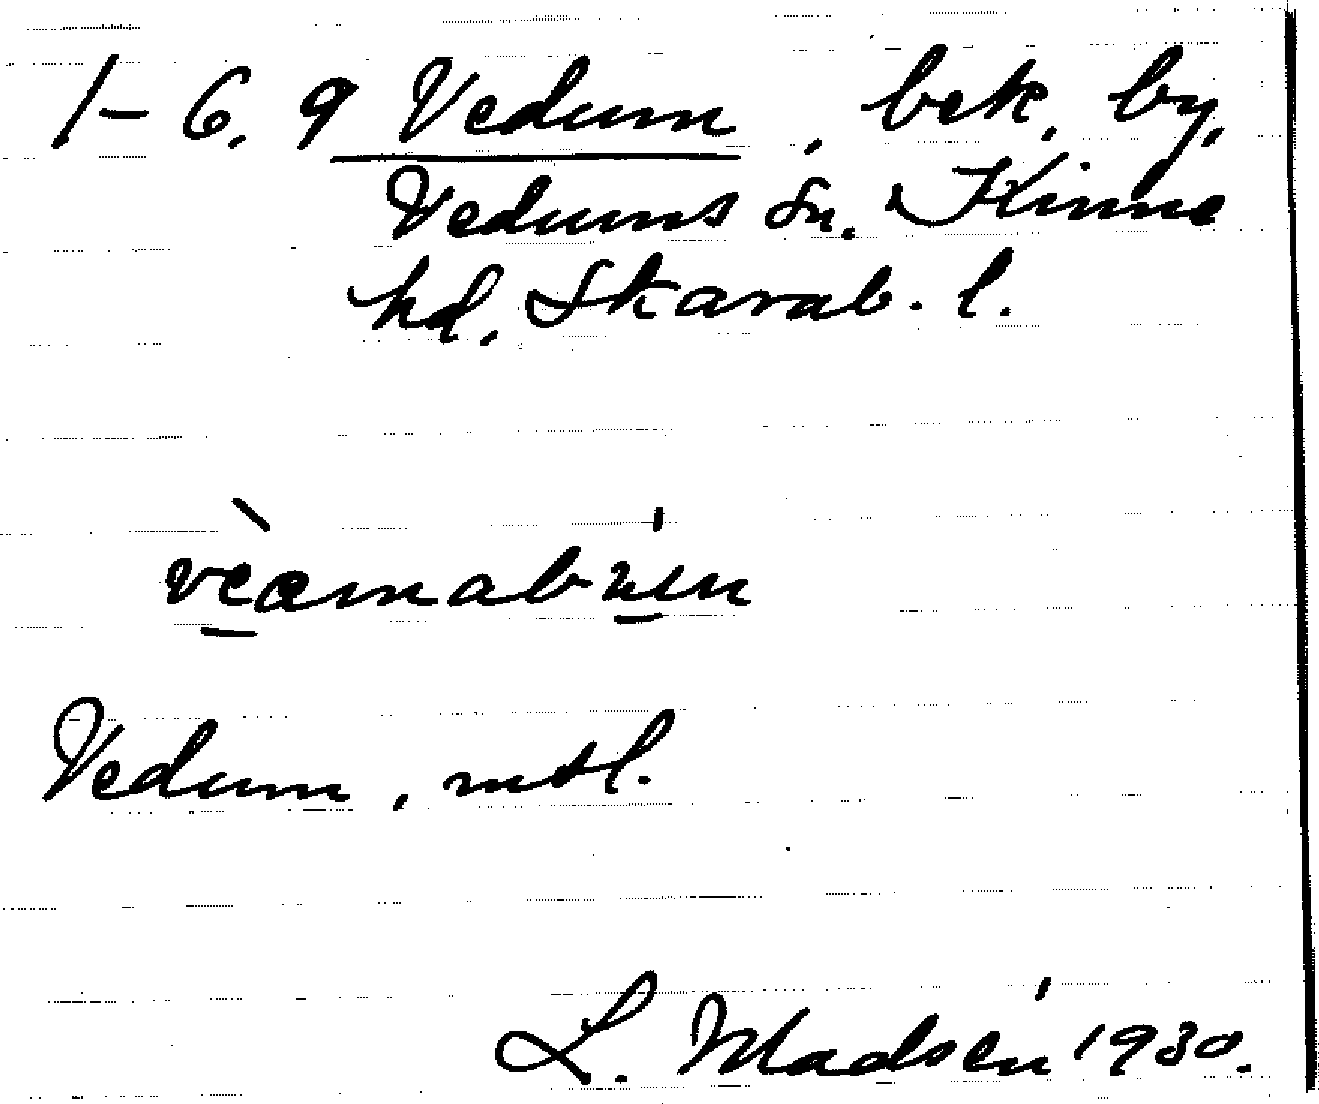 1-6, 9 Vedum, bek. by,
Vedums sn. Kinne
hd. Skarab. l.
Vedum, mtl.
L. Madsén 1930.